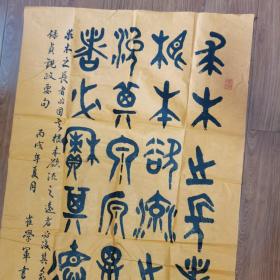 求木之長
根本欲流
浚其泉原
者必積其德
求木之長者必固其根本欲流之遠者必浚其泉
錄貞觀政要句
丙戌年夏月
崔學軍書